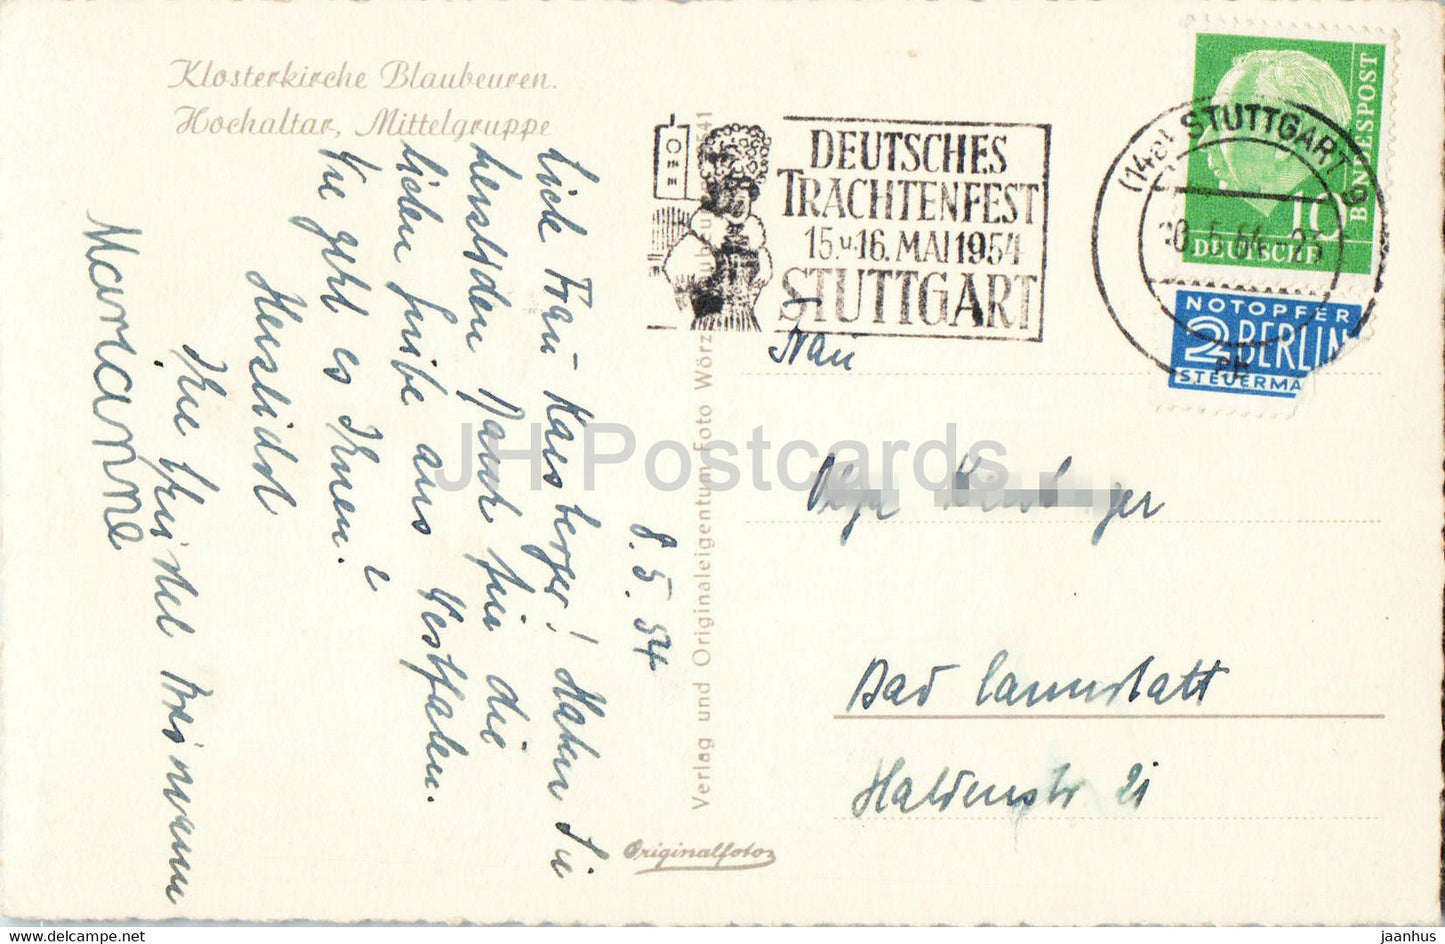 Klosterkirche Blaubeuren.
Hochaltar, Mittelgruppe
8.5.54
Liebe Frau Kaisberger! Haben Sie
herzlichen Dank für die
lieben Grüße aus Westfalen.
Wie geht es Ihnen?
Herzlichst
Ihre
Marianne
Verlag und Originaleigentum Foto Wörz
541
Originalfoto
DEUTSCHES
TRACHTENFEST
15.u.16. MAI 1954
STUTTGART
(14a) STUTTGART 9
5.54.-23
10
BUNDESPOST
DEUTSCHE
NOTOPFER
2 BERLIN
STEUERMA
Frau
Olga
Bad Cannstatt
Haldenstr 21
JH Postcards
delcampe.net
jaanhus